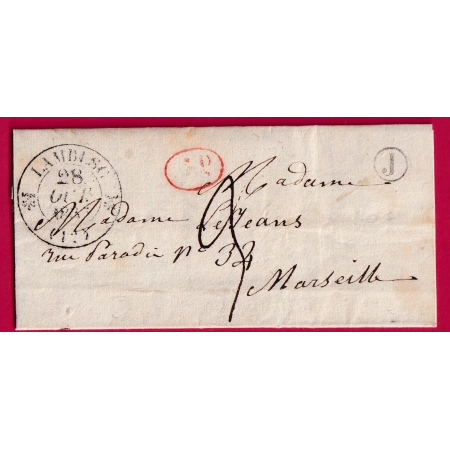 LAMBESC
28
J
Madame
Madame LeJeans
rue Paradis n° 32
Marseille